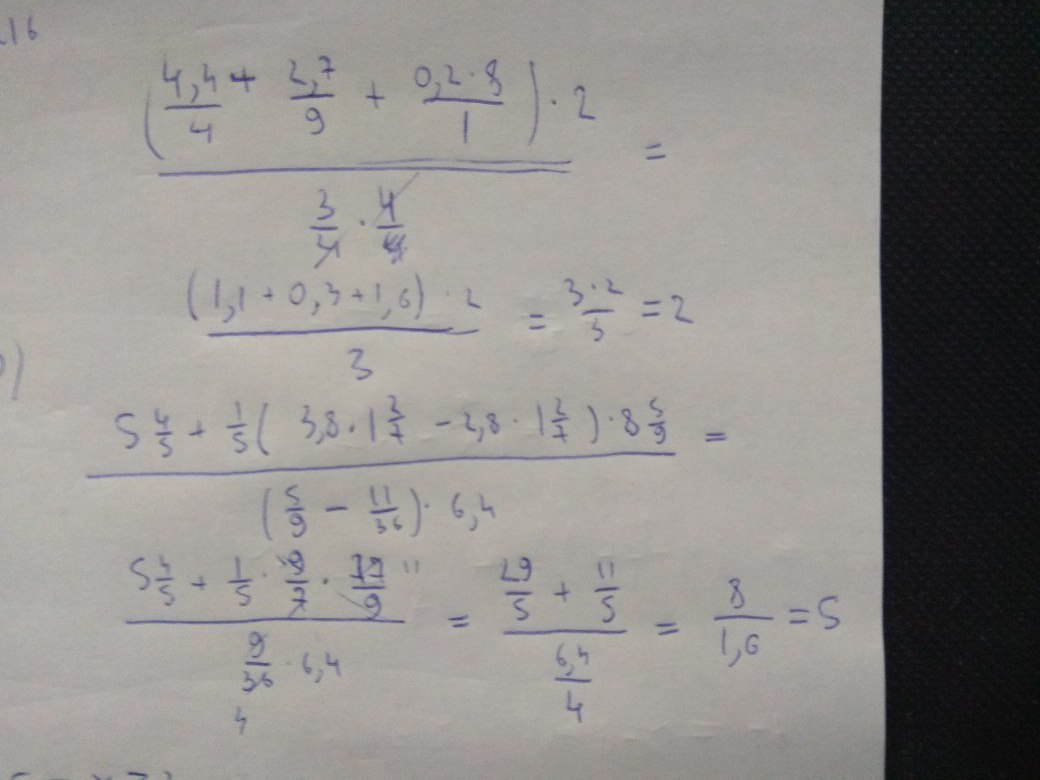 216
(4,4/4 + 2,7/9 + 0,2·8/1) · 2 / (3/4 · 4/4) =
(1,1 + 0,3 + 1,6) · 2 / 3 = 3·2/3 = 2
)
5 4/5 + 1/5 ( 3,8 · 1 2/7 − 2,8 · 1 2/7 ) · 8 5/9 / (5/9 − 11/36) · 6,4 =
5 4/5 + 1/5 · 9/7 · 77/9 11 / 9/36 4 · 6,4 = 29/5 + 11/5 / 6,4/4 = 8/1,6 = 5